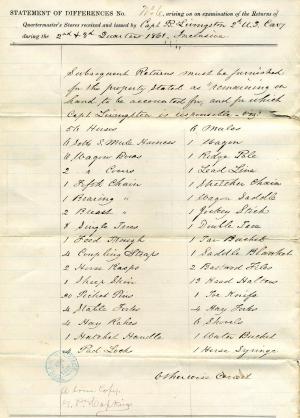 STATEMENT OF DIFFERENCES No. arising on an examination of the Returns of
Quartermaster's Stores received and issued by Capt R. Livingston 2d U.S. Cavy
during the 2nd & 3d Quarters 1861. Inclusive
Subsequent Returns must be furnished
for the property stated as "remaining on
hand to be accounted for, and for which
Capt Livingston is responsible - viz:
56 Horses 6 Mules
6 Setts S. Mule Harness 1 Wagon
6 Wagon Bows 1 Ridge Pole
2 " Covers 1 Lead Line
1 Fifth Chain 1 Stretcher Chain
1 Bearing " 1 Wagon Saddle
2 Breast " 1 Jockey Stick
8 Single Trees 1 Double Tree
1 Feed Trough 1 Tar Bucket
4 Coupling Straps 1 Saddle Blanket
2 Horse Rasps 2 Bastard Files
1 Sheep Skin 12 Head Halters
20 Picket Pins 1 Toe Knife
4 Stable Forks 4 Hay Forks
4 Hay Rakes 6 Shovels
1 Hatchet Handle 1 Water Bucket
4 Pad Locks 1 Horse Syringe
Otherwise Correct
A true Copy.